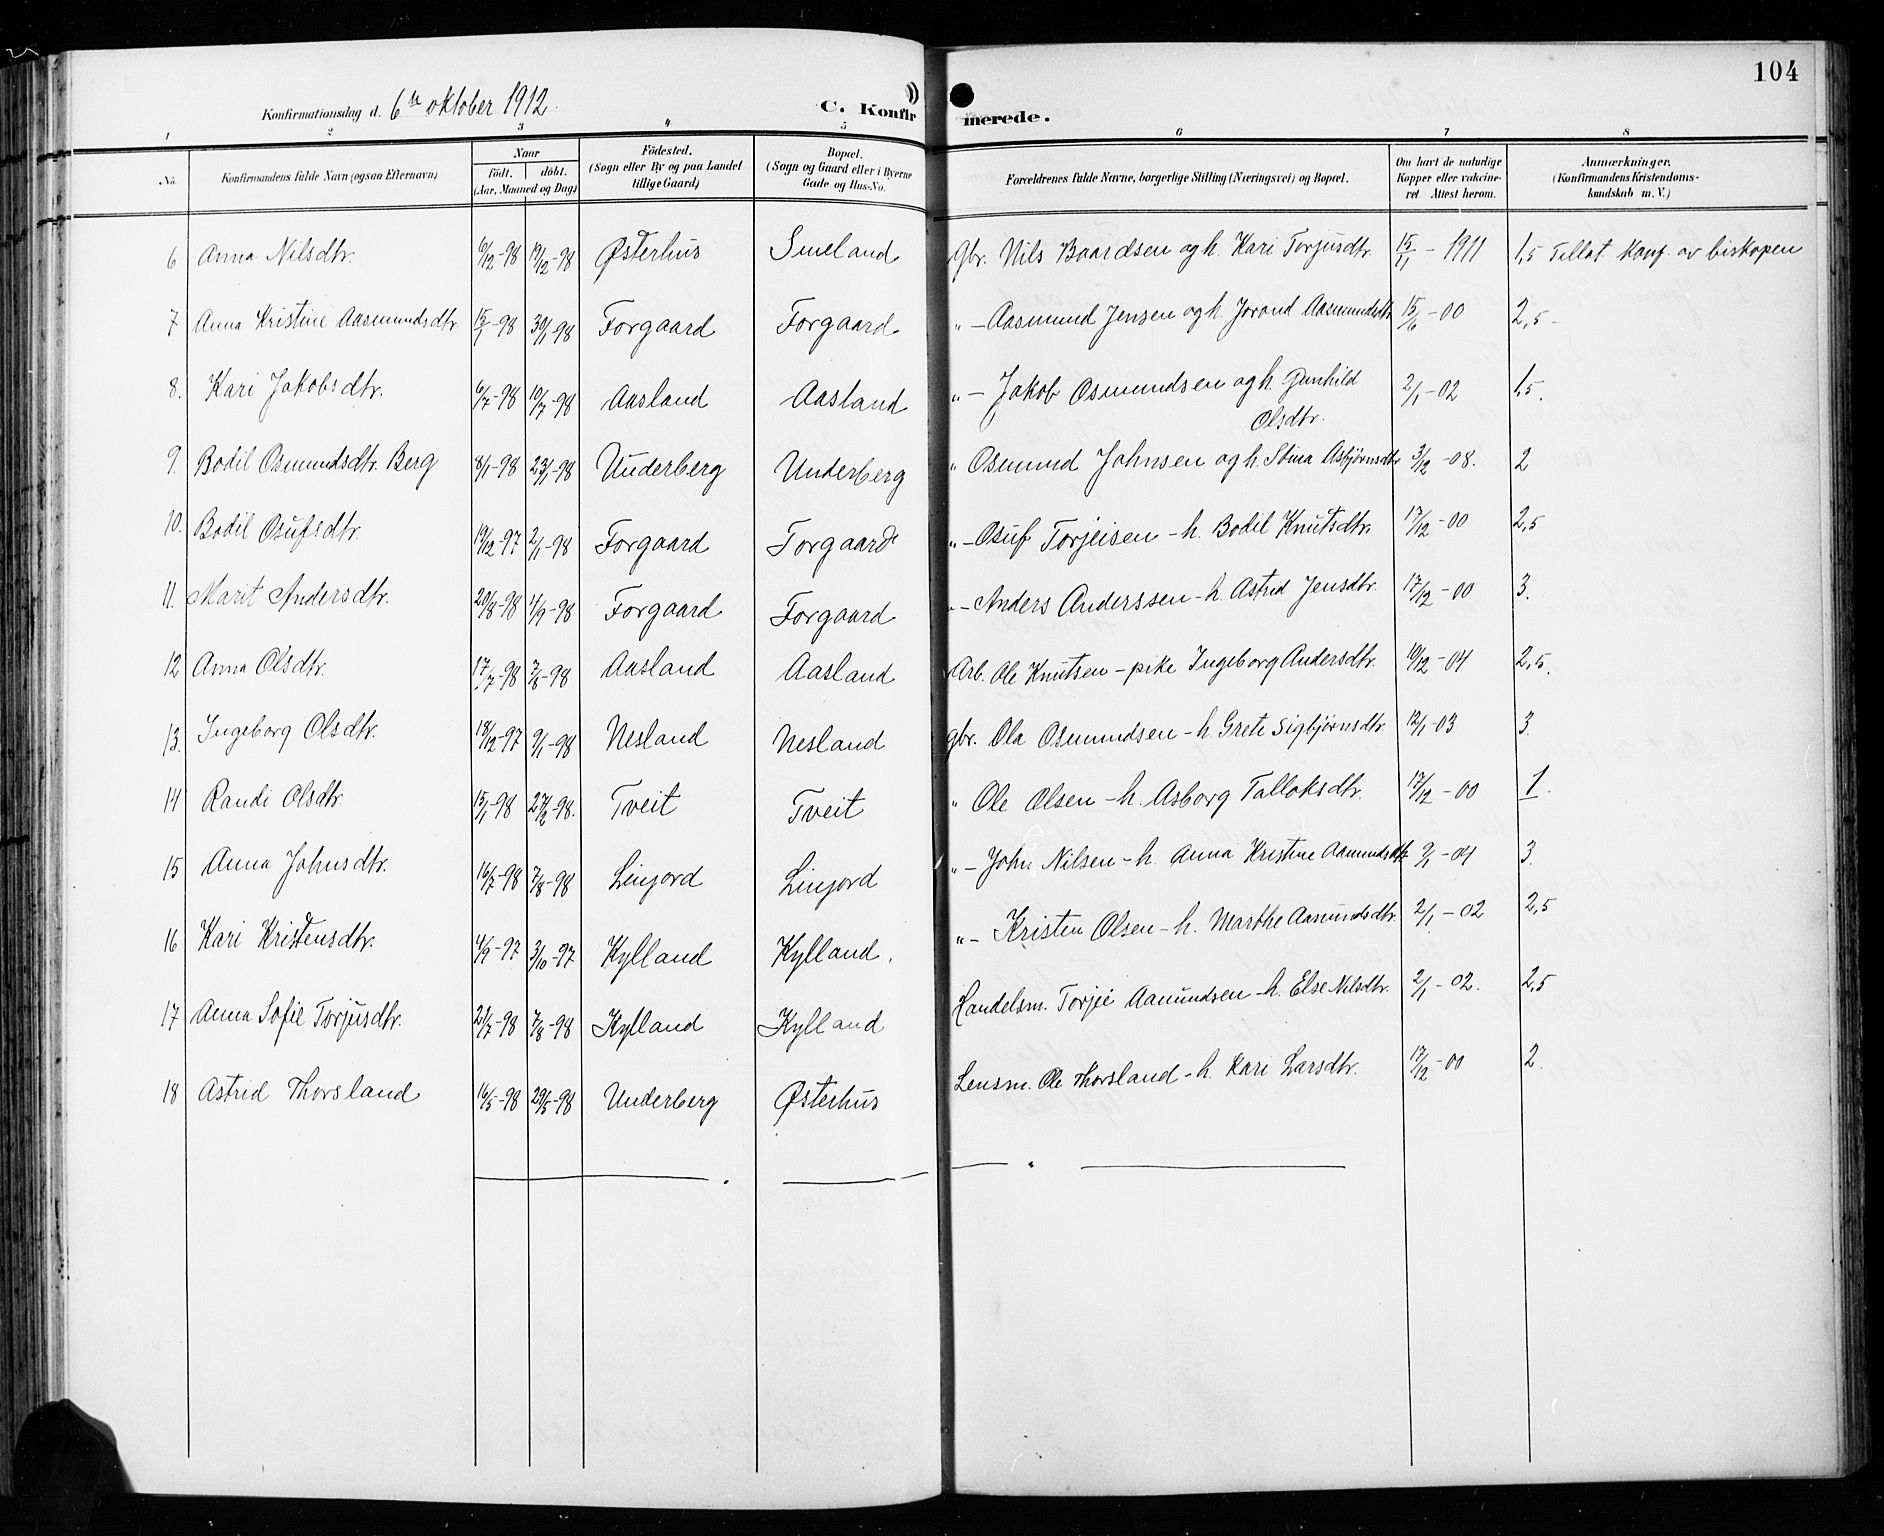 104
Konfirmationsdag d. 6te oktober 1912.
C. Konfirmerede.
1 2 3 4 5 6 7 8
No. Konfirmandens fulde Navn (ogsaa Efternavn) Naar født. døbt. (Aar, Maaned og Dag) Fødested. (Sogn eller By og paa Landet tillige Gaard) Bopæl. (Sogn og Gaard eller i Byerne Gade og Hus-No. Forældrenes fulde Navne, borgerlige Stilling (Næringsvei) og Bopæl. Om havt de naturlige Kopper eller vakcineret. Attest herom. Anmærkninger, (Konfirmandens Kristendomskundskab m. V.)
6 Anna Nilsdtr. 6/12-98 19/12-98 Østerhus Smeland Gbr. Nils Baardsen og h. Kari Torjusdtr. 15/11-1911 1,5 Tillat konf. av biskopen
7 Anna Kristine Aasmundsdtr. 15/1-98 30/1-98 Forgaard Forgaard " - Aasmund Jensen og h. Jorand Aasmundsdtr 15/6-00 2,5
8. Kari Jakobsdtr. 6/7-98 10/7-98 Aasland Aasland " - Jakob Osmundsen og h. Gunhild Olsdtr. 2/1-02 1,5.
9. Bodil Osmundsdtr. Berg 8/1-98 23/1-98 Underberg Underberg " Osmund Johnsen og h. Stina Asbjørnsdtr 3/12-08. 2
10. Bodil Osufsdtr. 19/12-97 2/1-98 Forgaard Forgaard " - Osuf Torjeisen - h. Bodil Knutsdtr. 17/12-00 2,5
11. Marit Andersdtr. 20/8-98 4/9-98 Forgaard Forgaard " - Anders Anderssen - h. Astrid Jensdtr. 17/12-00 3.
12 Anna Olsdtr. 17/7-98 7/8-98 Aasland Aasland Arb. Ole Knutsen - pike Ingeborg Andersdtr. 10/12-04 2,5.
13. Ingeborg Olsdtr. 18/12-97 9/1-98 Nesland Nesland gbr. Ola Osmundsen - h. Grete Sigbjørnsdtr. 12/1-03 3.
14 Randi Olsdtr. 15/1-98 27/2-98. Tveit Tveit " Ole Olsen - h. Asborg Talloksdtr. 17/12-00 1.
15 Anna Johnsdtr. 16/7-98 7/8-98 Linjord Linjord " - John Nilsen - h. Anna Kristine Aamundsdtr 2/1-04 3.
16 Kari Kristensdtr. 4/9-97 3/10-97 Kylland Kylland. " - Kristen Olsen - h. Marthe Aamundsdtr. 2/1-02 2,5
17 Anna Sofie Torjusdtr. 21/7-98 7/8-98 Kylland Kylland Handelsm. Torjei Aamundsen - h. Else Nilsdtr. 2/1-02. 2,5
18 Astrid Thorsland 16/5-98 29/5-98 Underberg Østerhus Lensm. Ole Thorsland - h. Kari Larsdtr. 17/12-00 2.